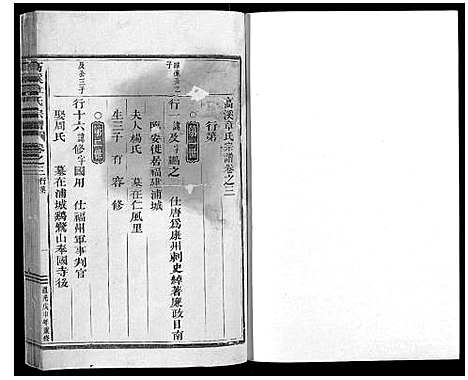 高溪章氏宗譜卷之三
行第
行一諱及字鵬之 仕唐爲康州刺史綽著廉政自南
安徙居福建浦城
夫人楊氏 墓在仁風里
生三子 有 容 修
及公三子
行十六諱修字國用 仕福州軍事判官
娶周氏 墓在浦城鷄鷲山奉國寺後
高溪章氏宗譜 卷之三 行第 一
道光戊申年重修